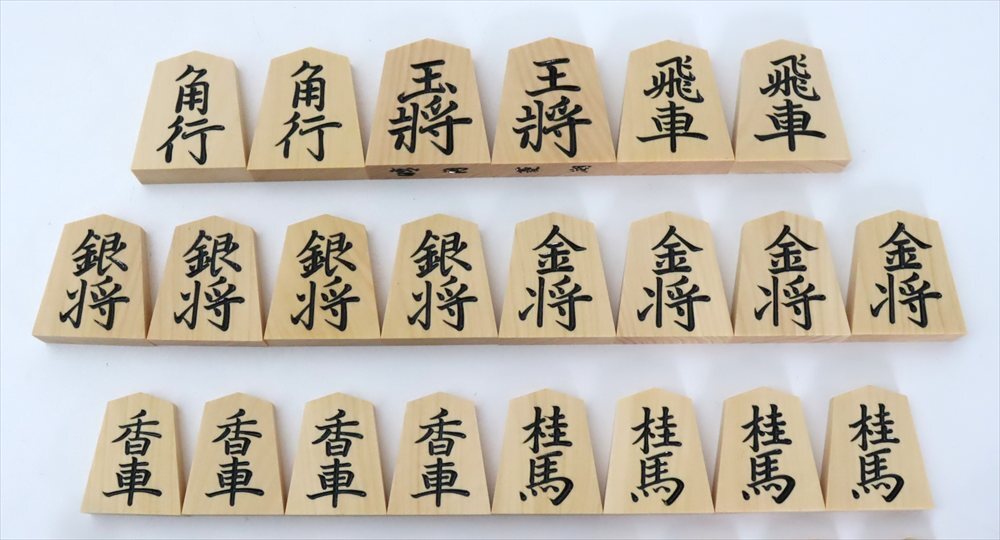 角行 角行 玉将 王将 飛車 飛車
銀将 銀将 銀将 銀将 金将 金将 金将 金将
香車 香車 香車 香車 桂馬 桂馬 桂馬 桂馬